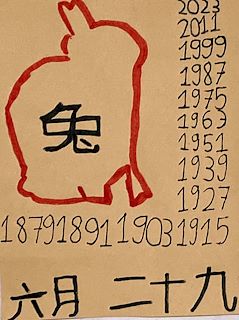 2023
2011
1999
1987
1975
1963
1951
1939
1927
兔
1879 1891 1903 1915
六月 二十九